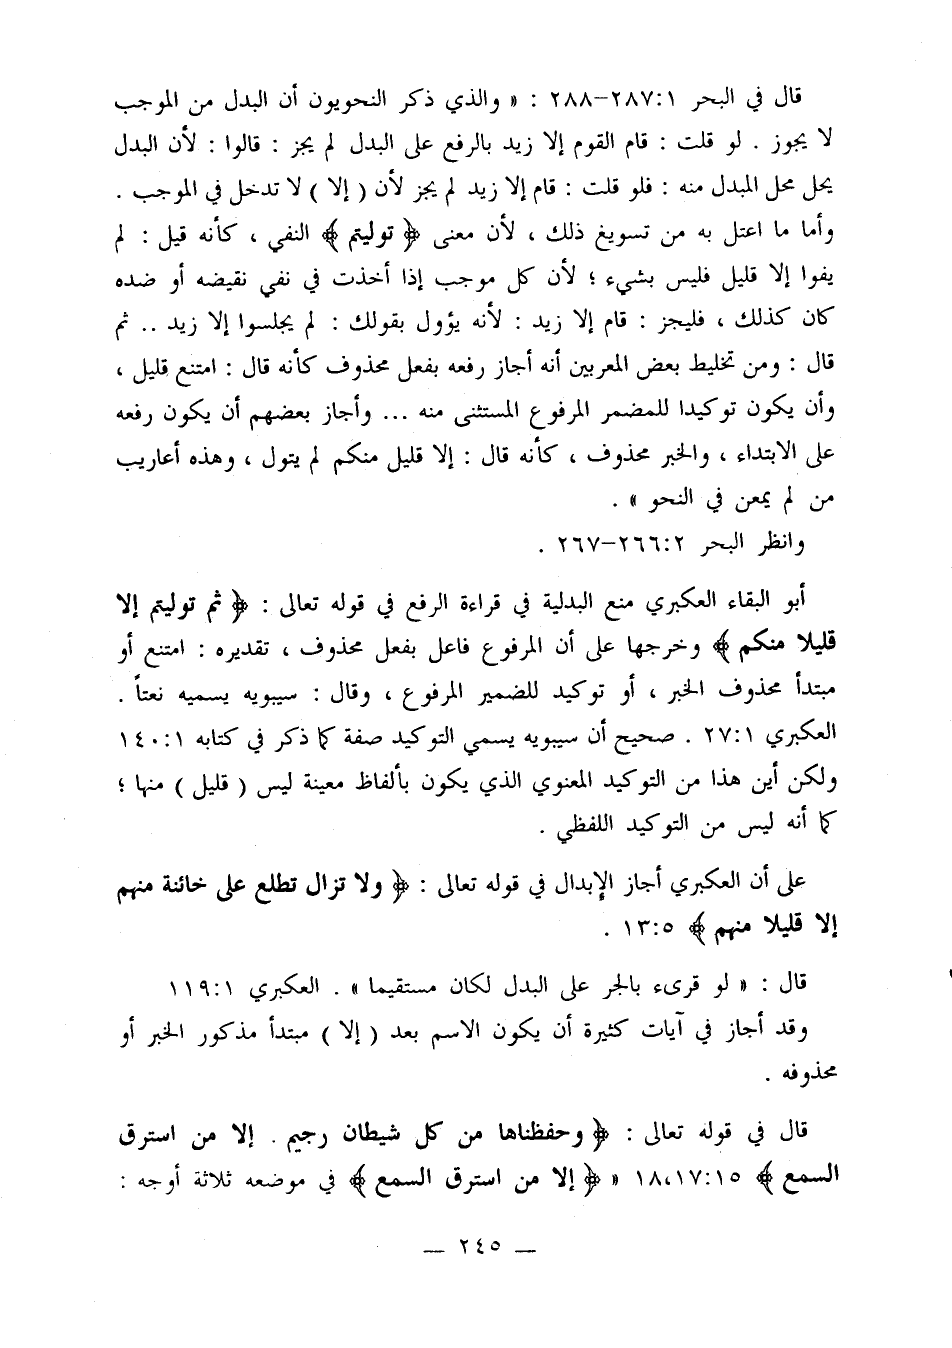 قال في البحر ٢٨٧:١–٢٨٨ : « والذي ذكر النحويون أن البدل من الموجب
لا يجوز . لو قلت : قام القوم إلا زيد بالرفع على البدل لم يجز : قالوا : لأن البدل
يحل محل المبدل منه : فلو قلت : قام إلا زيد لم يجز لأن ( إلا ) لا تدخل في الموجب .
وأما ما اعتل به من تسويغ ذلك ، لأن معنى ﴿ توليتم ﴾ النفي ، كأنه قيل : لم
يفوا إلا قليل فليس بشيء ؛ لأن كل موجب إذا أخذت في نفي نقيضه أو ضده
كان كذلك ، فليجز : قام إلا زيد : لأنه يؤول بقولك : لم يجلسوا إلا زيد .. ثم
قال : ومن تخليط بعض المعربين أنه أجاز رفعه بفعل محذوف كأنه قال : امتنع قليل ،
وأن يكون توكيدا للمضمر المرفوع المستثنى منه ... وأجاز بعضهم أن يكون رفعه
على الابتداء ، والخبر محذوف ، كأنه قال : إلا قليل منكم لم يتول ، وهذه أعاريب
من لم يمعن في النحو » .
وانظر البحر ٢٦٦:٢–٢٦٧ .
أبو البقاء العكبري منع البدلية في قراءة الرفع في قوله تعالى : ﴿ ثم توليتم إلا
قليلا منكم ﴾ وخرجها على أن المرفوع فاعل بفعل محذوف ، تقديره : امتنع أو
مبتدأ محذوف الخبر ، أو توكيد للضمير المرفوع ، وقال : سيبويه يسميه نعتاً .
العكبري ٢٧:١ . صحيح أن سيبويه يسمي التوكيد صفة كما ذكر في كتابه ١٤٠:١
ولكن أين هذا من التوكيد المعنوي الذي يكون بألفاظ معينة ليس ( قليل ) منها ؛
كما أنه ليس من التوكيد اللفظي .
على أن العكبري أجاز الإبدال في قوله تعالى : ﴿ ولا تزال تطلع على خائنة منهم
إلا قليلا منهم ﴾ ١٣:٥ .
قال : « لو قرىء بالجر على البدل لكان مستقيما » . العكبري ١١٩:١
وقد أجاز في آيات كثيرة أن يكون الاسم بعد ( إلا ) مبتدأ مذكور الخبر أو
محذوفه .
قال في قوله تعالى : ﴿ وحفظناها من كل شيطان رجيم . إلا من استرق
السمع ﴾ ١٨،١٧:١٥ « ﴿ إلا من استرق السمع ﴾ في موضعه ثلاثة أوجه :
— ٢٤٥ —